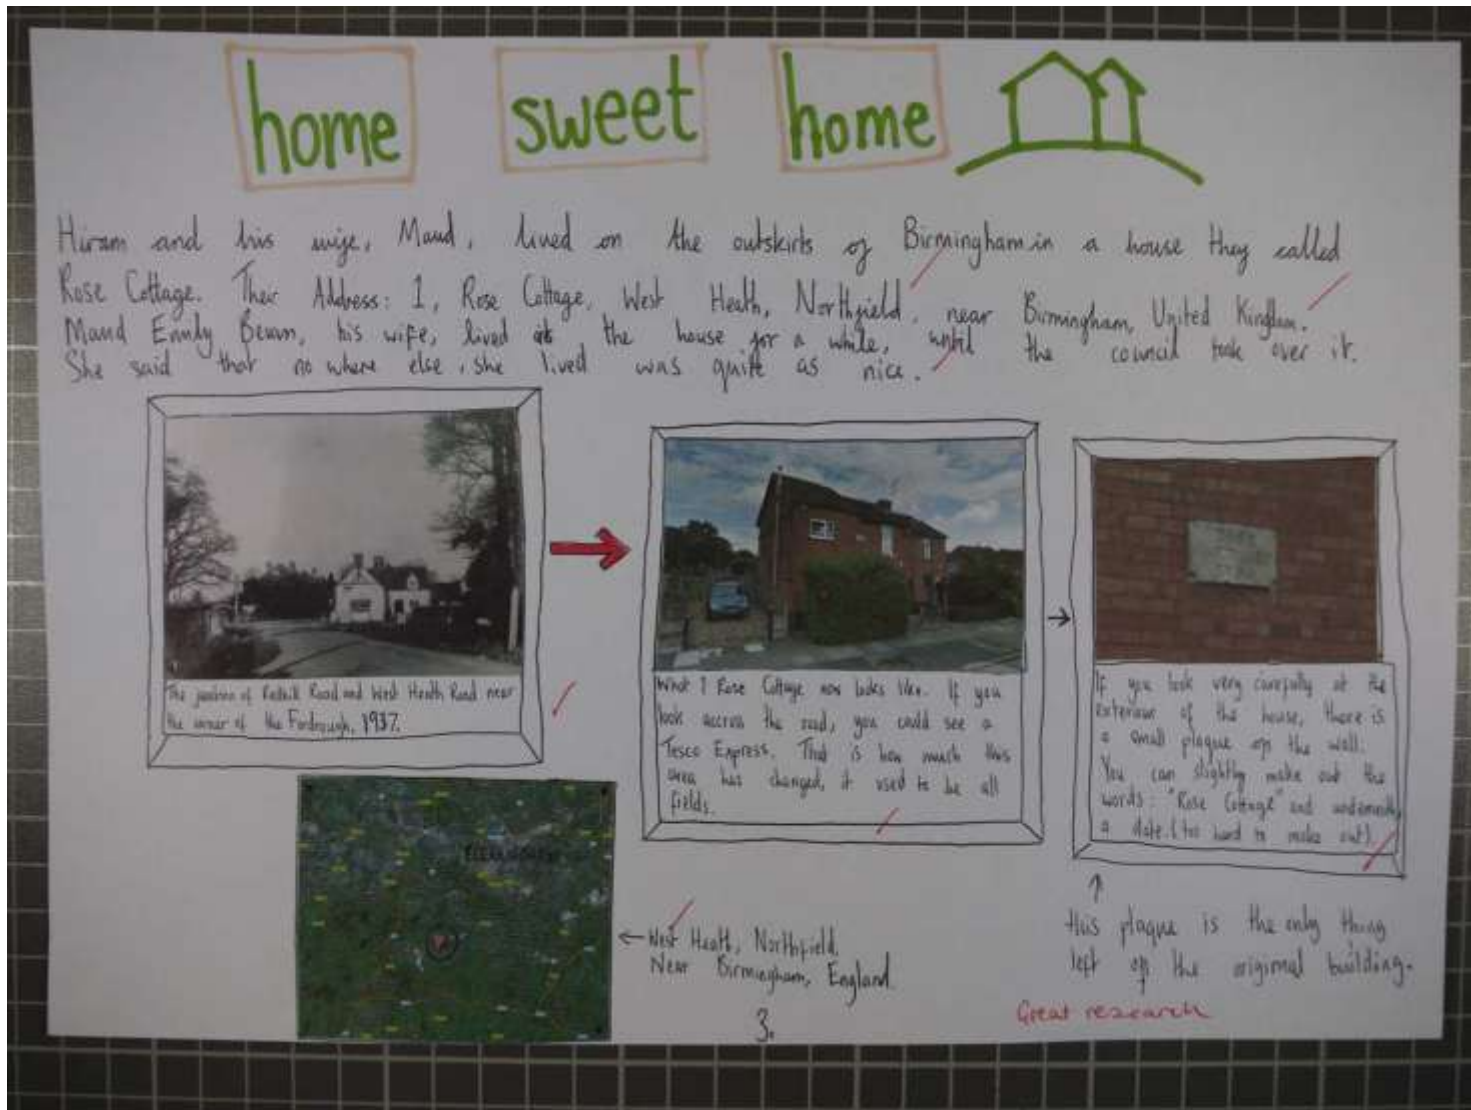 home sweet home
Hiram and his wife, Maud, lived on the outskirts of Birmingham in a house they called
Rose Cottage. Their Address: 1, Rose Cottage, West Heath, Northfield, near Birmingham, United Kingdom.
Maud Emily Bevan, his wife, lived at the house for a while, until the council took over it.
She said that no where else, she lived was quite as nice.
The junction of Redhill Road and West Heath Road near
the corner of the Fordrough, 1937.
What 1 Rose Cottage now looks like. If you
look accross the road, you could see a
Tesco Express. That is how much this
area has changed, it used to be all
fields.
If you look very carefully at the
exteriour of the house, there is
a small plaque on the wall.
You can slightly make out the
words: "Rose Cottage" and underneath,
a date. (too hard to make out).
West Heath, Northfield,
Near Birmingham, England.
this plaque is the only thing
left of the original building.
Great research
3.